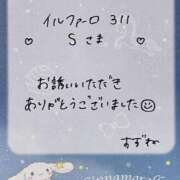 イルファーロ 311
♡ Sさま ♡
お誘いいただき
ありがとうございました☺
すずね